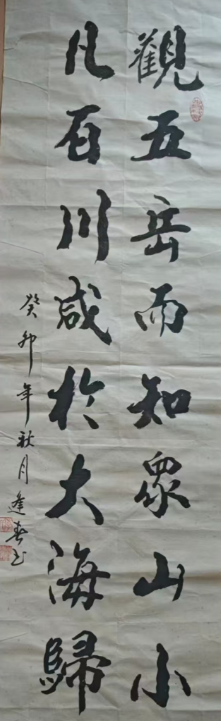 觀五岳而知眾山小
凡百川咸於大海歸
癸卯年秋月逢春书